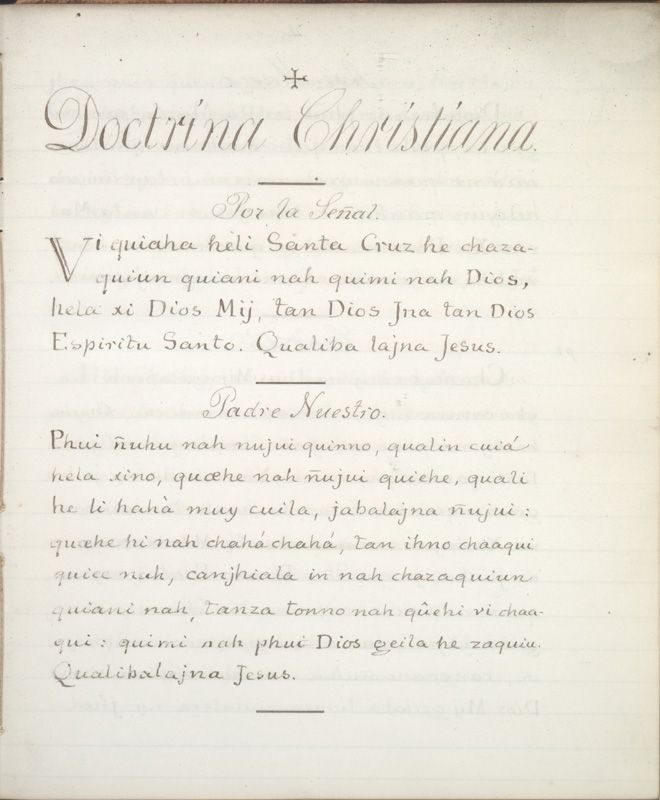 Doctrina Christiana.
Por la Señal.
Vi quiaha heli Santa Cruz he chaza-
quiun quiani nah quimi nah Dios,
hela xi Dios Mij, tan Dios Jna tan Dios
Espiritu Santo. Qualiba lajna Jesus.
Padre Nuestro.
Phui ñuhu nah nujui quinno, qualin cuiá
hela xino, quæhe nah ñujui quiehe, quali
he li hahà muy cuila, jabalajna ñujui:
quæhe hi nah chahá chahá, tan ihno chaaqui
quiee nah, canjhiala in nah chazaquiun
quiani nah, tanza tonno nah qûehi vi chaa-
qui: quimi nah phui Dios geila he zaquiu.
Qualibalajna Jesus.